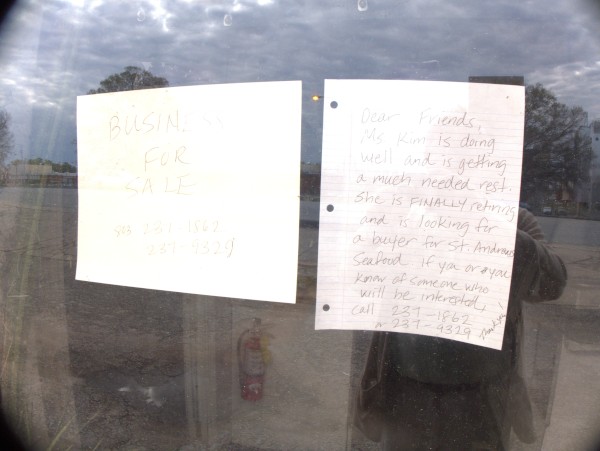 BUSINESS
FOR
SALE
803 237-1862
237-9329
Dear Friends,
Ms Kim is doing
well and is getting
a much needed rest.
She is FINALLY retiring
and is looking for
a buyer for St. Andrews
Seafood if you or you
know of someone who
will be interested,
call 237-1862
or 237-9329 Thank you